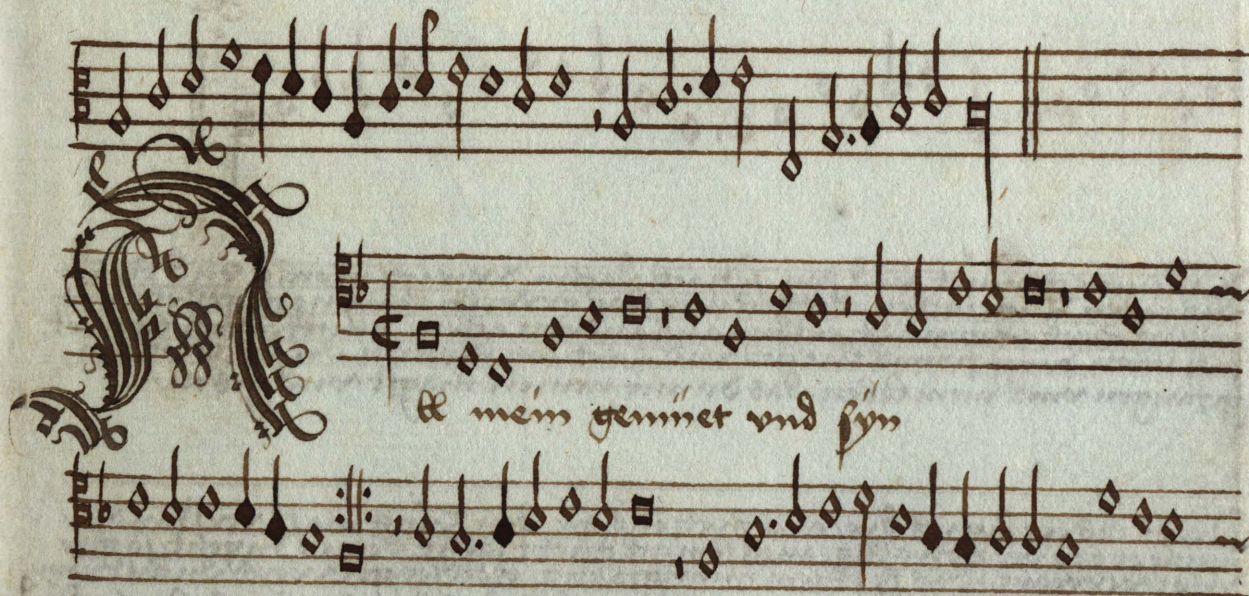 All mein gemüet vnd syn